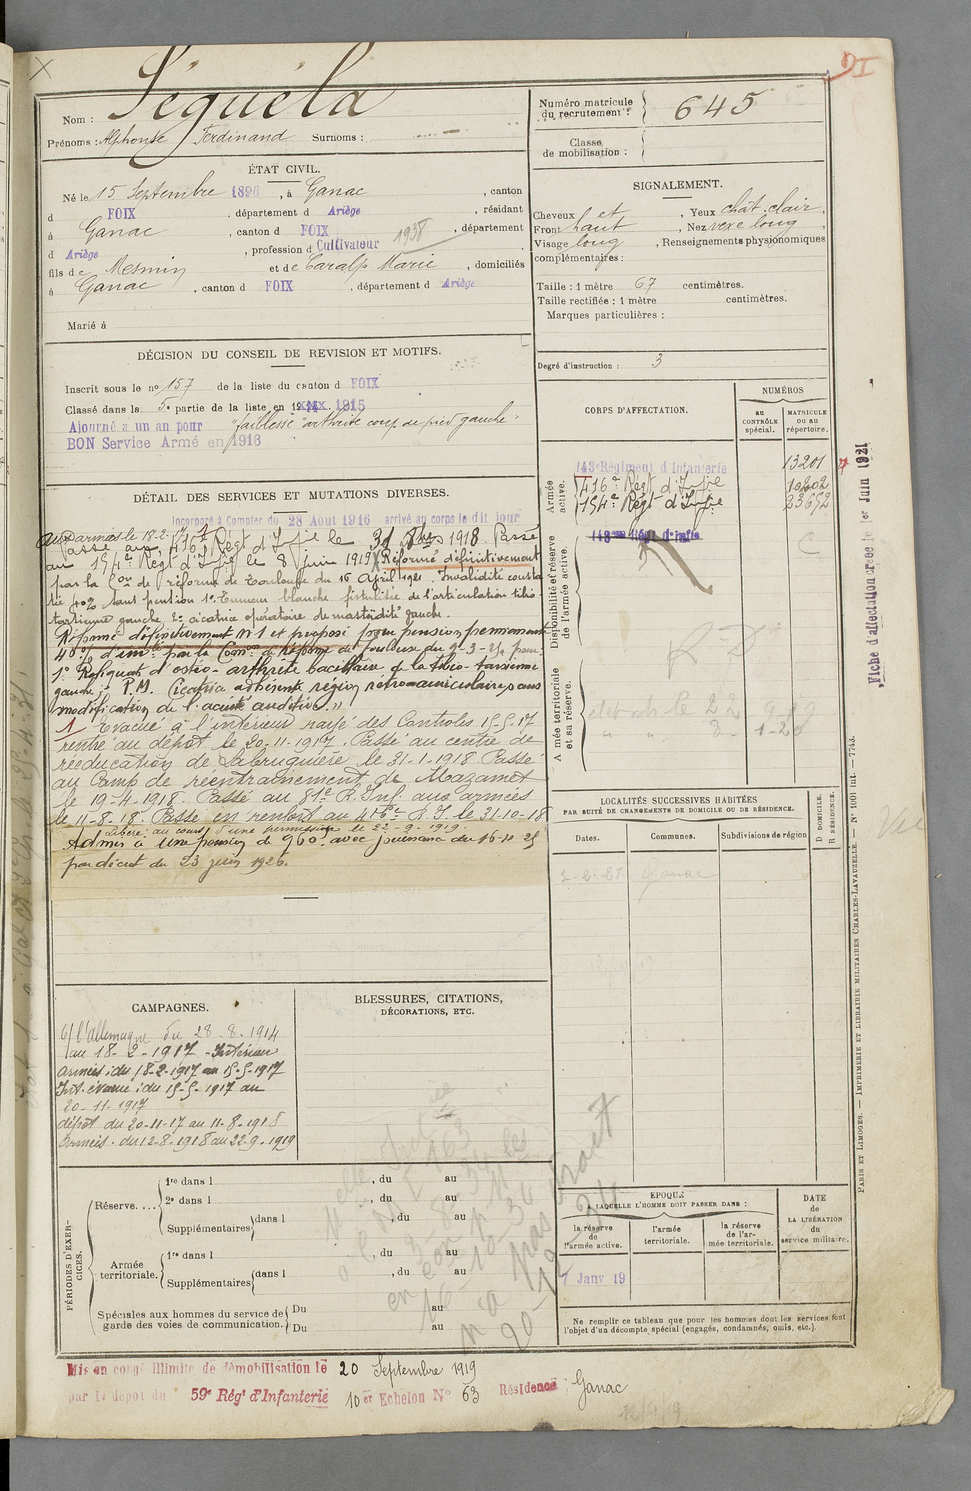 DI
Nom : Séguéla
Prénoms : Alphonse Ferdinand Surnoms :
Numéro matricule du recrutement : 645
Classe de mobilisation :
ÉTAT CIVIL.
Né le 15 Septembre 1896, à Ganac, canton
d FOIX, département d Ariège, résidant
à Ganac, canton d FOIX, département
d Ariège, profession d Cultivateur 1938
fils de Mesmin et de Caralp Marie, domiciliés
à Ganac, canton d FOIX, département d Ariège
Marié à
SIGNALEMENT.
Cheveux et, Yeux chât. clair,
Front haut, Nez vexe long,
Visage long, Renseignements physionomiques
complémentaires :
Taille : 1 mètre 67 centimètres.
Taille rectifiée : 1 mètre centimètres.
Marques particulières :
Degré d'instruction : 3
DÉCISION DU CONSEIL DE REVISION ET MOTIFS.
Inscrit sous le no 157 de la liste du canton d FOIX
Classé dans la 5e partie de la liste en 1915
Ajourné a un an pour "faiblesse arthrite coup de pied gauche"
BON Service Armé en 1916
DÉTAIL DES SERVICES ET MUTATIONS DIVERSES.
Incorporé à Compter du 28 Août 1916 arrivé au corps le dit jour
aux armées le 18-2-17
Passé au 416e Régt d'Infie le 31 8bre 1918. Passé
au 154e Régt d'Infie le 8 juin 1919. Réformé définitivement
par la Con de réforme de Toulouse du 16 April 1921. Invalidité consta
tée 40% taux pension 1o Tumeur blanche fistulisée de l'articulation tibio
tarsienne gauche, 2o cicatrice opératoire de mastoïdite gauche.
Réformé définitivement No 1 et proposé pour pension permanente
40% d'invté par la Comon de Réforme de Toulouse du 9-3-25 pour
1o Reliquat d'ostéo-arthrite bacillaire de la tibio-tarsienne
gauche; 2o P.M. Cicatrice adhérente région rétro-auriculaire sans
modification de l'acuité auditive."
1 Evacué à l'intérieur rayé des Contrôles 15-5-17
rentré au dépôt le 20-11-1917. Passé au centre de
rééducation de Labruguière le 31-1-1918 Passé
au Camp de réentraînement de Mazamet
le 19-4-1918. Passé au 81e R. Inf. aux armées
le 11-8-18. Passé en renfort au 416e R.I. le 31-10-18
Libéré au cours d'une permission le 22-9-1919.
Admis à une pension de 960f avec jouissance du 16-4-25
par décret du 23 juin 1926.
CORPS D'AFFECTATION.
NUMÉROS
au CONTRÔLE spécial.
MATRICULE ou au répertoire.
Armée active.
143e Régiment d'Infanterie 13201
416e Régt d'Infie 10602
154e Régt d'Infie 23652
Disponibilité et réserve de l'armée active.
143eme Régt d'Infie
Armée territoriale et sa réserve.
Fiche d'affectation créée le 1er Juin 1921
LOCALITÉS SUCCESSIVES HABITÉES
PAR SUITE DE CHANGEMENTS DE DOMICILE OU DE RÉSIDENCE.
Dates. Communes. Subdivisions de région
D DOMICILE. R RÉSIDENCE.
Ganac
PARIS ET LIMOGES. — IMPRIMERIE ET LIBRAIRIE MILITAIRES CHARLES-LAVAUZELLE. — No 1001 int. — 7743.
CAMPAGNES.
C/ l'Allemagne du 28-8-1914
au 18-2-1917 - Intérieur
Armées : du 18-2-1917 au 15-5-1917
Int. évacué : du 15-5-1917 au
20-11-1917
dépôt du 20-11-17 au 11-8-1918
Armées : du 12-8-1918 au 22-9-1919
BLESSURES, CITATIONS,
DÉCORATIONS, ETC.
PÉRIODES D'EXERCICES.
Réserve....
1re dans l , du au
2e dans l , du au
Supplémentaires dans l , du au
Armée territoriale.
1re dans l , du au
Supplémentaires dans l , du au
Spéciales aux hommes du service de garde des voies de communication.
Du au
Du au
EPOQUE
A LAQUELLE L'HOMME DOIT PASSER DANS :
la réserve de l'armée active.
l'armée territoriale.
la réserve de l'armée territoriale.
DATE de LA LIBÉRATION du service militaire.
1 Janv 19
Ne remplir ce tableau que pour les hommes dont les services font
l'objet d'un décompte spécial (engagés, condamnés, omis, etc.).
Mis en congé illimité de démobilisation le 20 Septembre 1919
par le dépôt du 59e Régt d'Infanterie 10er Echelon No 63 Résidence : Ganac